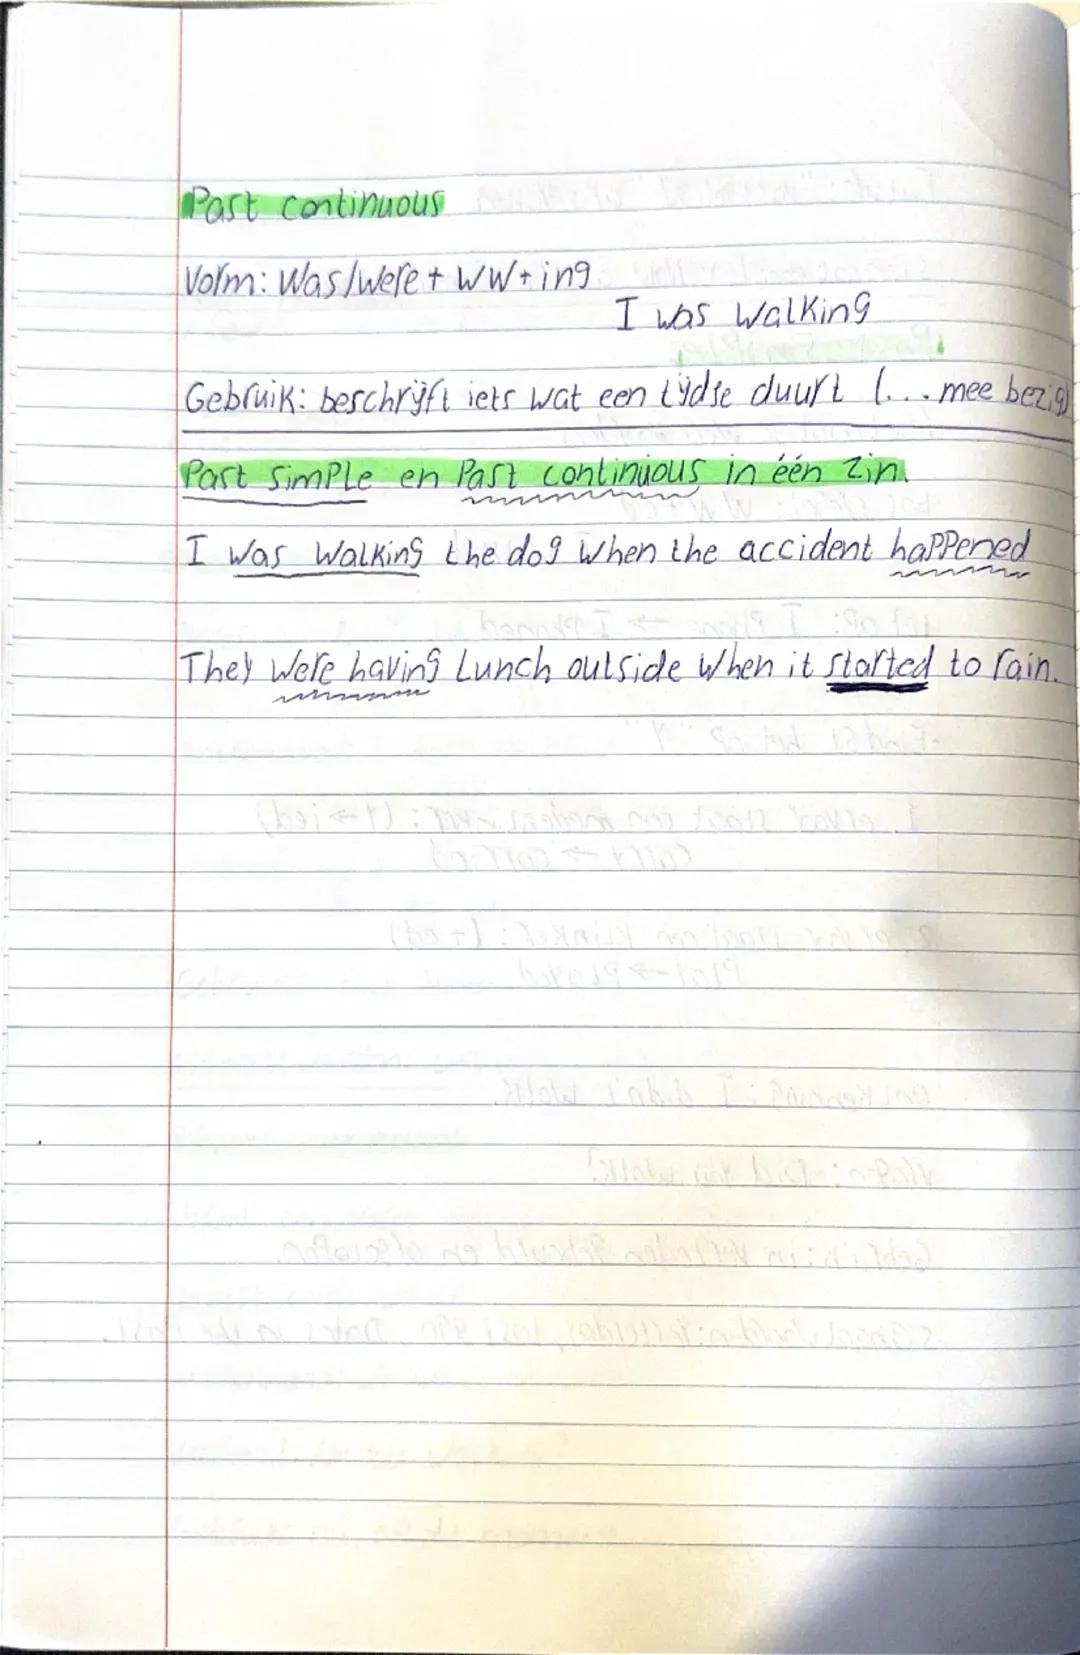 Past continuous
Vorm: Was/were + WW+ing
I was walking
Gebruik: beschrijft iets wat een tijdse duurt (... mee bezig)
Past simple en Past continuous in één zin.
I was walking the dog when the accident happened
They were having Lunch outside when it started to rain.